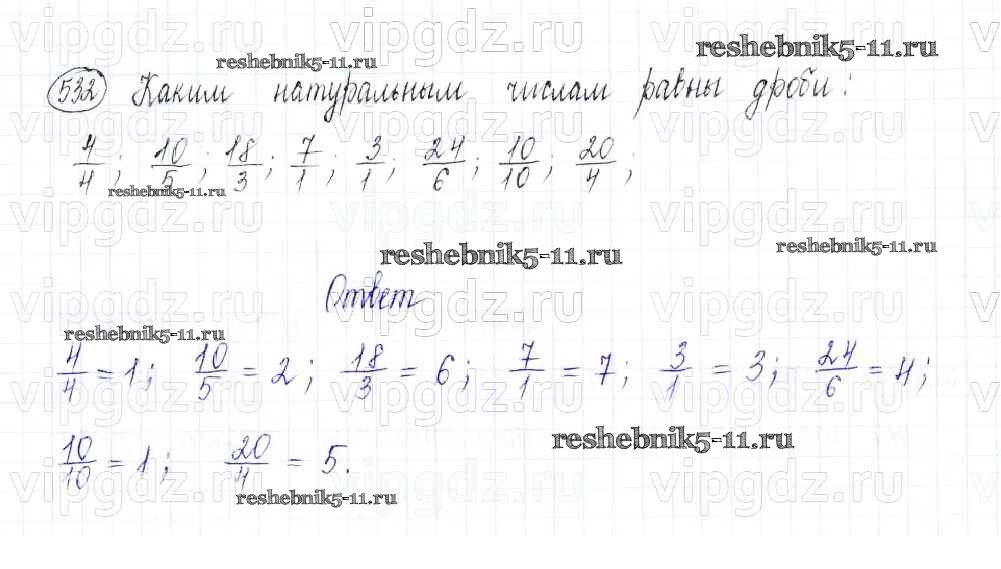 vipgdz.ru vipgdz.ru vipgdz.ru vipgdz.ru
reshebnik5-11.ru
reshebnik5-11.ru
532 Каким натуральным числам равны дроби:
vipgdz.ru vipgdz.ru vipgdz.ru vipgdz.ru
4/4; 10/5; 18/3; 7/1; 3/1; 24/6; 10/10; 20/4;
reshebnik5-11.ru
vipgdz.ru vipgdz.ru vipgdz.ru vipgdz.ru
reshebnik5-11.ru
reshebnik5-11.ru
Ответ
vipgdz.ru vipgdz.ru vipgdz.ru vipgdz.ru
reshebnik5-11.ru
4/4 = 1; 10/5 = 2; 18/3 = 6; 7/1 = 7; 3/1 = 3; 24/6 = 4;
vipgdz.ru vipgdz.ru vipgdz.ru vipgdz.ru
reshebnik5-11.ru
10/10 = 1; 20/4 = 5.
vipgdz.ru vipgdz.ru vipgdz.ru vipgdz.ru
reshebnik5-11.ru